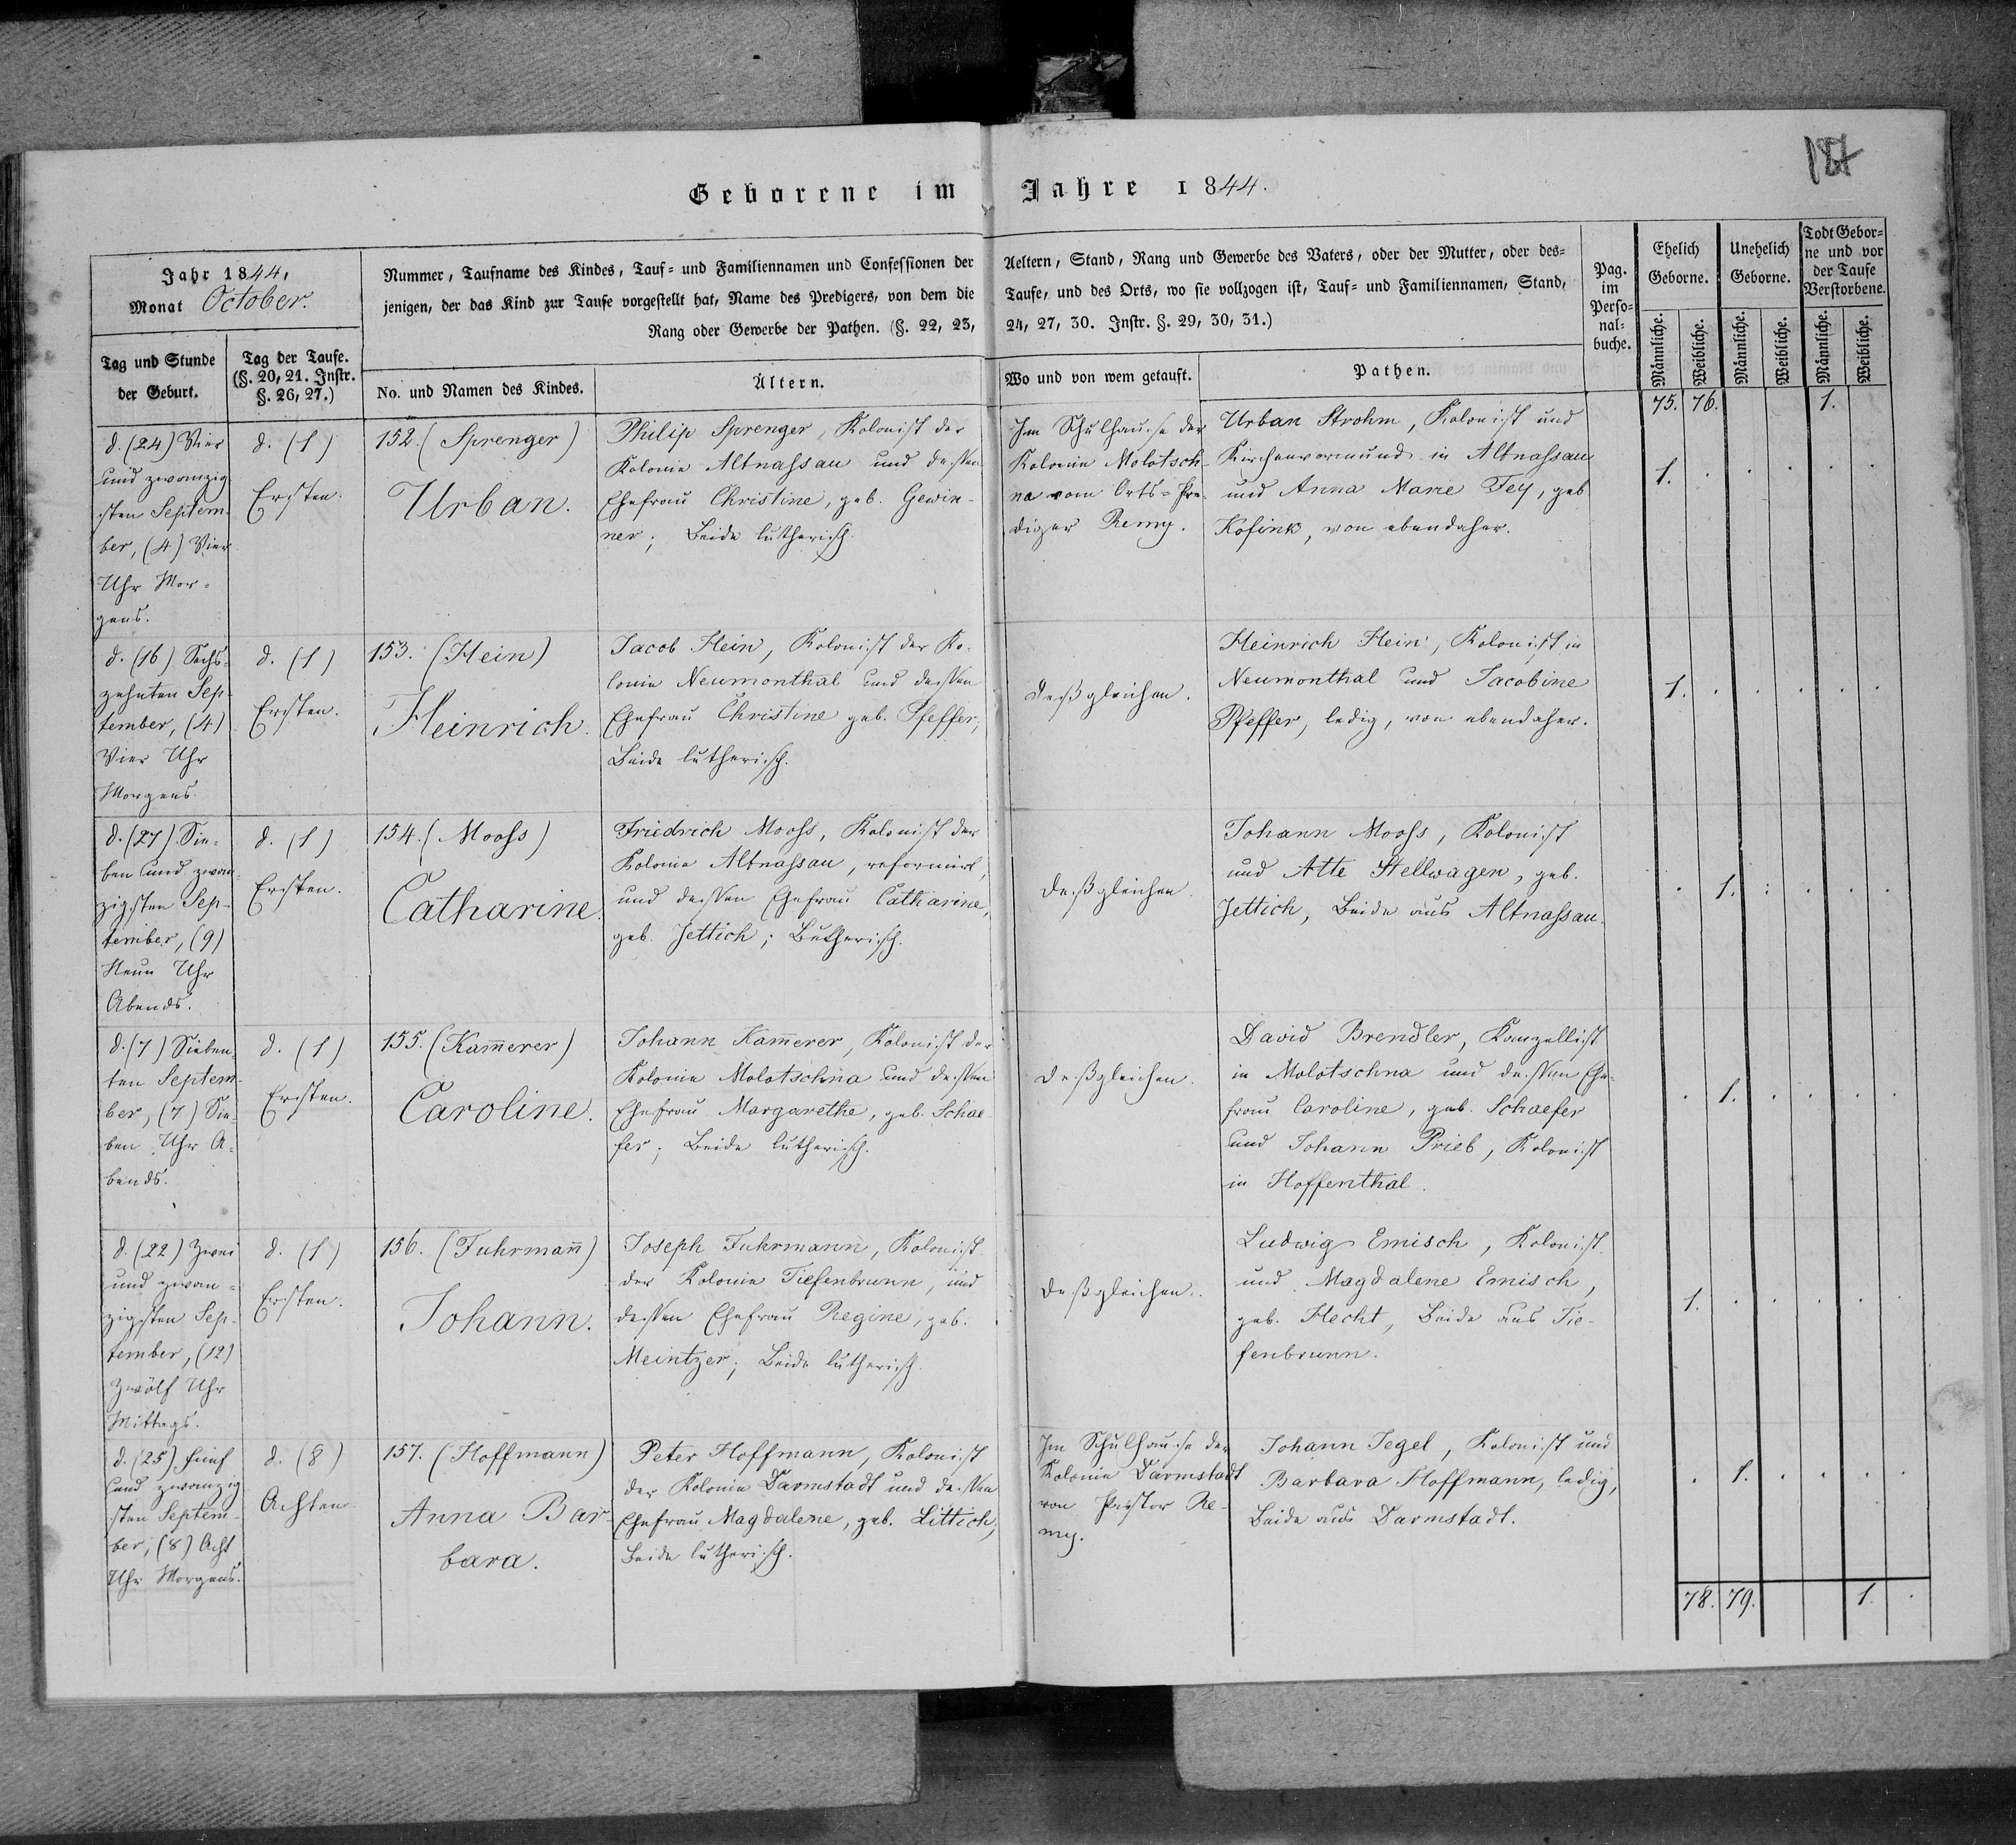 187
Geborene im Jahre 1844.
Jahr 1844,
Monat October.
Nummer, Taufname des Kindes, Tauf- und Familiennamen und Confessionen der Aeltern, Stand, Rang und Gewerbe des Vaters, oder der Mutter, oder des-
jenigen, der das Kind zur Taufe vorgestellt hat, Name des Predigers, von dem die Taufe, und des Orts, wo sie vollzogen ist, Tauf- und Familiennamen, Stand,
Rang oder Gewerbe der Pathen. (§. 22, 23, 24, 27, 30. Instr. §. 29, 30, 31.)
Pag.
im
Perso-
nal-
buche.
Ehelich
Geborne.
Unehelich
Geborne.
Todt Gebor-
ne und vor
der Taufe
Verstorbene.
Tag und Stunde
der Geburt.
Tag der Taufe.
(§. 20, 21. Instr.
§. 26, 27.)
No. und Namen des Kindes.
Ältern.
Wo und von wem getauft.
Pathen.
Männliche.
Weibliche.
Männliche.
Weibliche.
Männliche.
Weibliche.
75. 76. 1.
d. (24) Vier
und zwanzig
sten Septem-
ber, (4) Vier
Uhr Mor-
gens.
d. (1)
Ersten.
152. (Sprenger)
Urban.
Philip Sprenger, Kolonist der
Kolonie Altnaßau und dessen
Ehefrau Christine, geb. Gewin-
ner; Beide lutherisch.
Im Schulhause der
Kolonie Molotsch-
na vom Orts-Pre-
diger Remy.
Urban Strohm, Kolonist und
Kirchenvormund in Altnaßau
und Anna Marie Fey, geb.
Kofink, von ebendaher.
1. . . . . .
d. (16) Sechs-
zehnten Sep-
tember, (4)
Vier Uhr
Morgens.
d. (1)
Ersten.
153. (Hein)
Heinrich.
Jacob Hein, Kolonist der Ko-
lonie Neumonthal und dessen
Ehefrau Christine geb. Pfeffer,
Beide lutherisch.
Deßgleichen.
Heinrich Hein, Kolonist in
Neumonthal und Jacobine
Pfeffer, ledig, von ebendaher.
1. . . . . .
d. (27) Sie-
ben und zwan-
zigsten Sep-
tember, (9)
Neun Uhr
Abends.
d. (1)
Ersten.
154. (Mooß)
Catharine.
Friedrich Mooß, Kolonist der
Kolonie Altnaßau, reformirt,
und dessen Ehefrau Catharine,
geb. Jettich; Lutherisch.
Deßgleichen.
Johann Mooß, Kolonist
und Atte Stellwagen, geb.
Jettich, Beide aus Altnaßau.
. 1. . . . .
d. (7) Sieben-
ten Septem-
ber, (7) Sie-
ben Uhr A-
bends.
d. (1)
Ersten.
155. (Kam̄erer)
Caroline.
Johann Kam̄erer, Kolonist der
Kolonie Molotschna und dessen
Ehefrau Margarethe, geb. Schae-
fer; Beide lutherisch.
Deßgleichen.
David Brendler, Kanzellist
in Molotschna und dessen Ehe-
frau Caroline, geb. Schaefer
und Johann Prieb, Kolonist
in Hoffenthal.
. 1. . . . .
d. (22) Zwei
und zwan-
zigsten Sep-
tember, (12)
Zwölf Uhr
Mittags.
d. (1)
Ersten.
156. (Fuhrman̄)
Johann.
Joseph Fuhrmann, Kolonist
der Kolonie Tiefenbrunn, und
dessen Ehefrau Regine, geb.
Meintzer; Beide lutherisch.
Deßgleichen.
Ludwig Emisch, Kolonist
und Magdalene Emisch,
geb. Hecht, Beide aus Tie-
fenbrunn.
1. . . . . .
d. (25) Fünf
und zwanzig
sten Septem-
ber, (8) Acht
Uhr Morgens.
d. (8)
Achten.
157. (Hoffmann)
Anna Bar-
bara.
Peter Hoffmann, Kolonist
der Kolonie Darmstadt und dessen
Ehefrau Magdalene, geb. Littich,
Beide lutherisch.
Im Schulhause der
Kolonie Darmstadt
von Pastor Re-
my.
Johann Jegel, Kolonist und
Barbara Hoffmann, ledig,
Beide aus Darmstadt.
. 1. . . . .
78. 79. 1. .